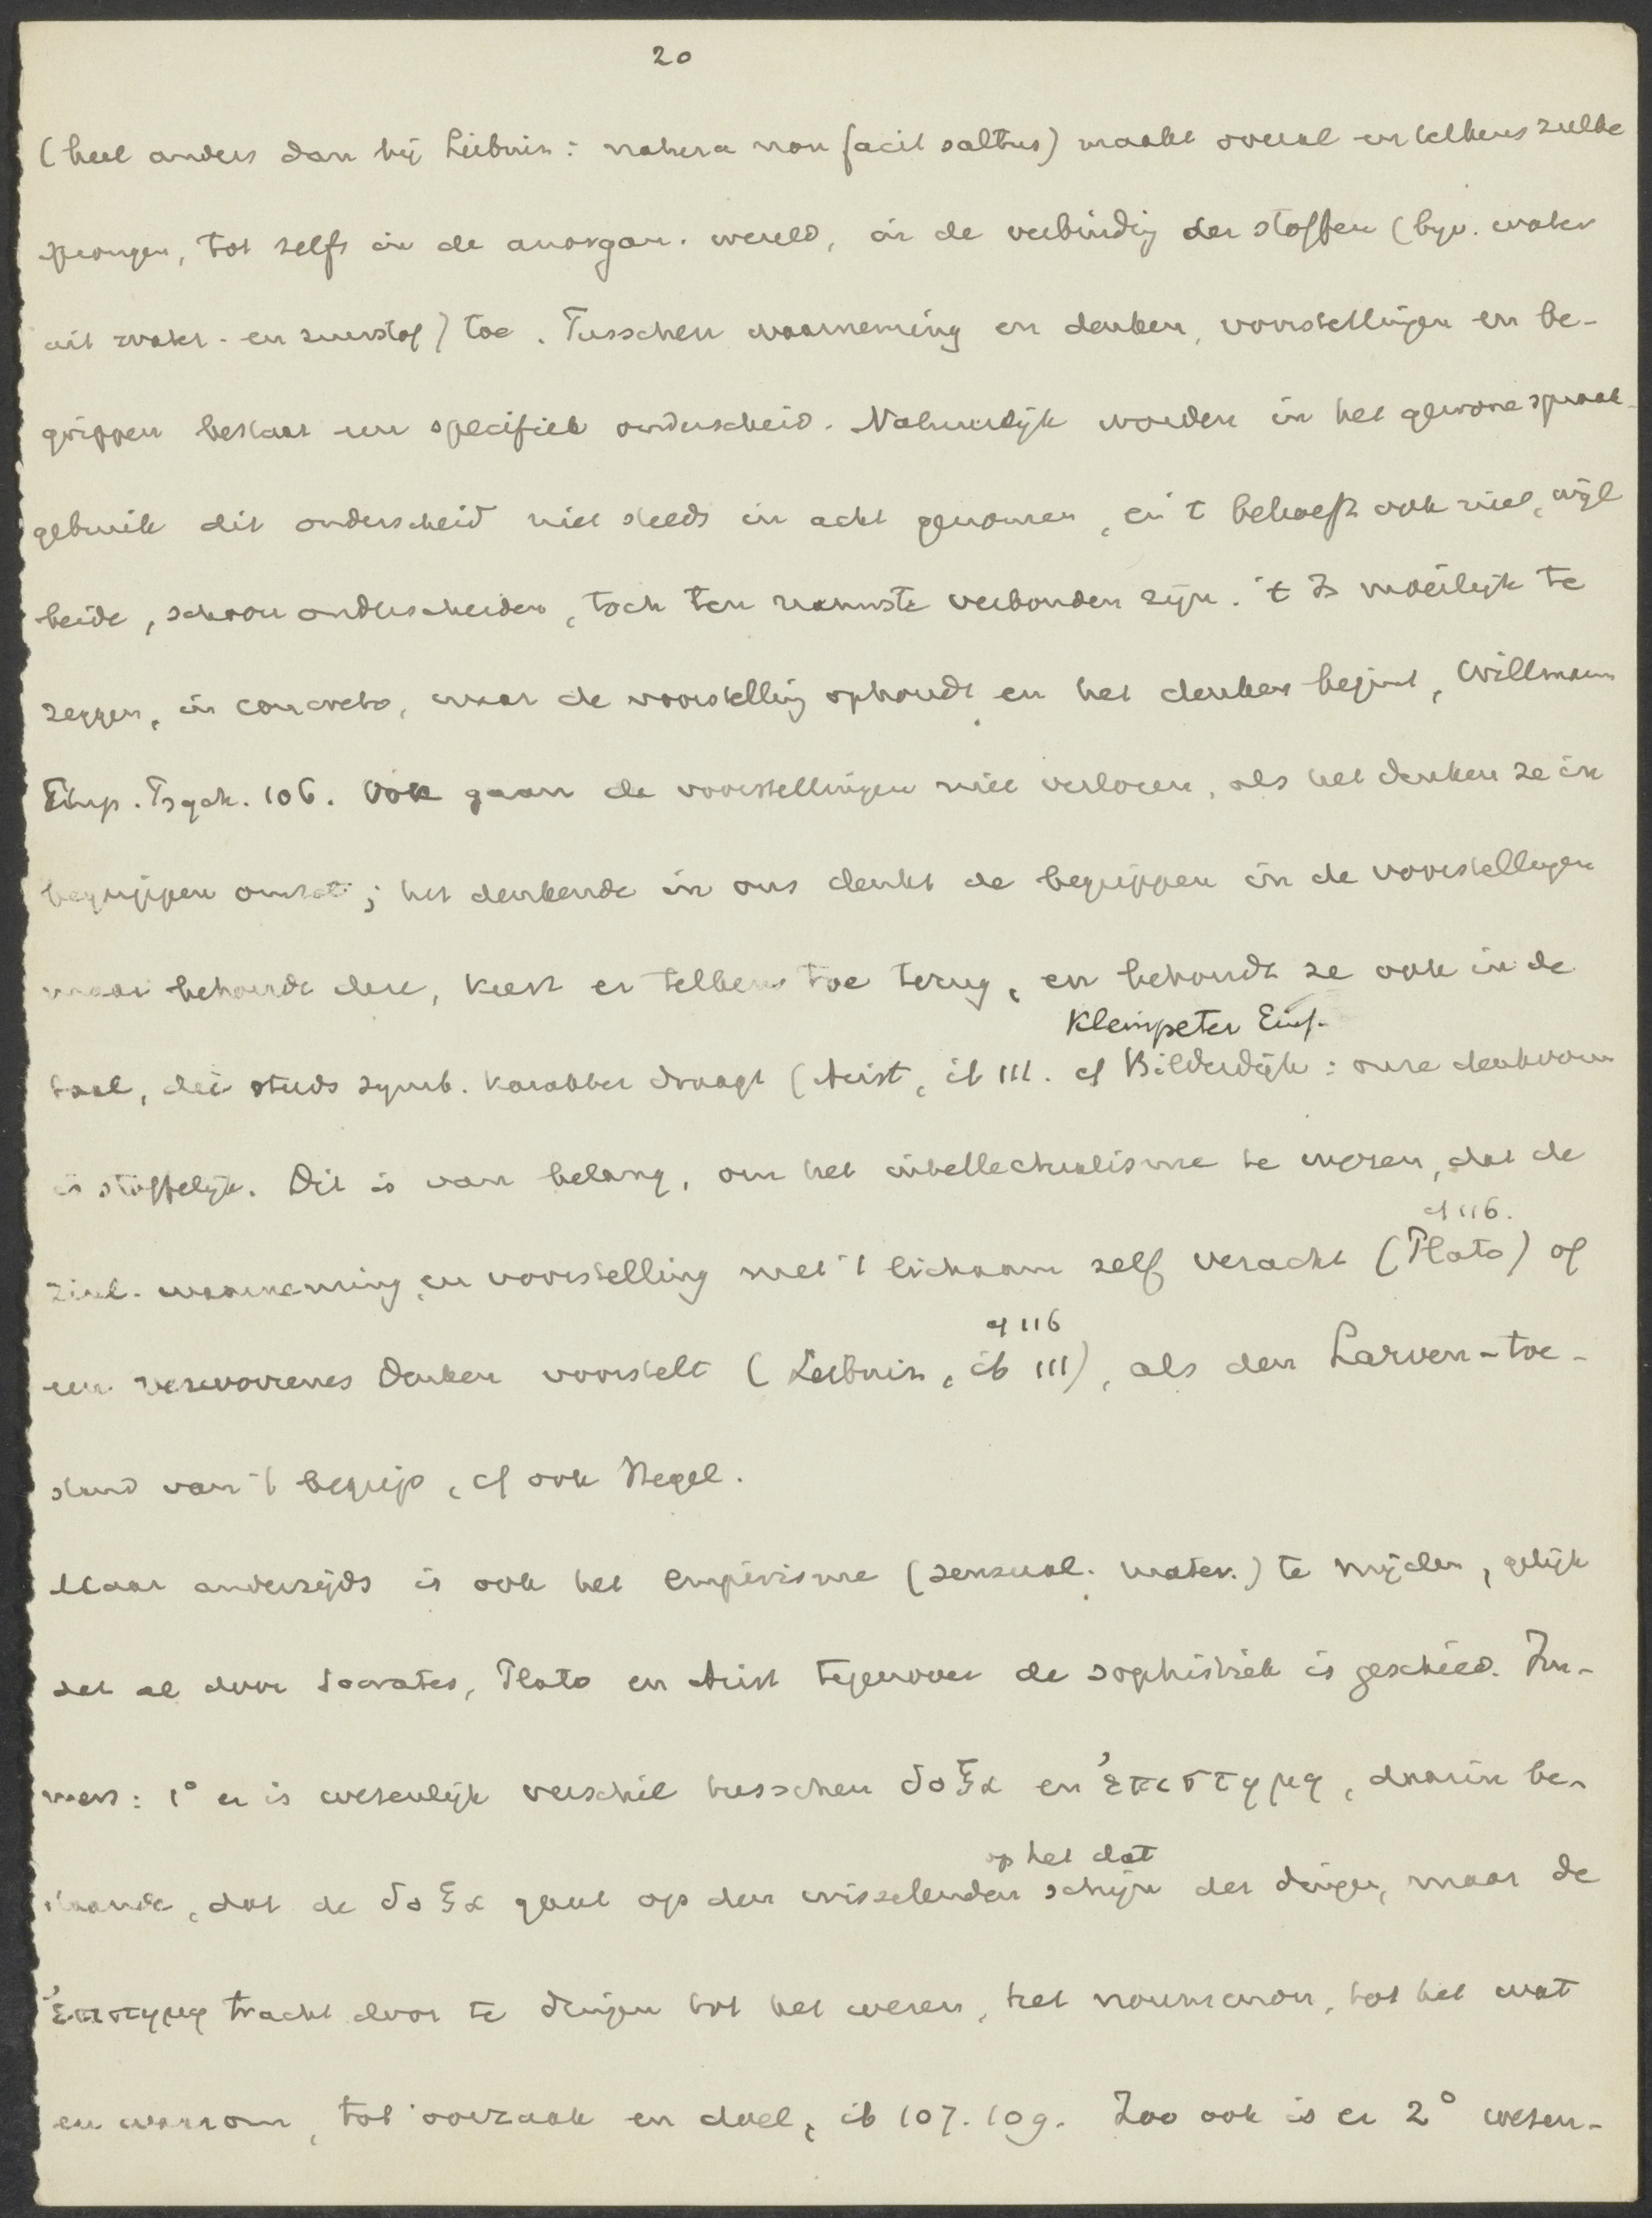 20
(heel anders dan bij Leibniz: natura non facit saltus) maakt overal en telkens zulke
sprongen, tot zelfs in de anorgan. wereld, in de verbinding der stoffen (byv. water
uit water- en zuurstof) toe. Tusschen waarneming en denken, voorstellingen en be-
grippen bestaat een specifiek onderscheid. Natuurlijk worden in het gewone spraak-
gebruik dit onderscheid niet steeds in acht genomen, en 't behoeft ook niet, wijl
beide, schoon onderscheiden, toch ten nauwste verbonden zijn. 't Is moeilijk te
zeggen, in concreto, waar de voorstelling ophoudt en het denken begint, Willmann
Emp. Psych. 106. Ook gaan de voorstellingen niet verloren, als het denken ze in
begrippen omzet; het denkende in ons denkt de begrippen in de voorstellingen
maar behoudt deze, keert er telkens toe terug, en behoudt ze ook in de
Kleinpeter Einf.
taal, die steeds symb. karakter draagt (Arist, ib 111. cf Bilderdijk: onze denkvorm
is stoffelijk. Dit is van belang, om het intellectualisme te weren, dat de
cf 116.
zinl. waarneming en voorstelling met 't lichaam zelf veracht (Plato) of
cf 116
een verworrenes Denken voorstelt (Leibniz, ib 111), als den Larven-toe-
stand van 't begrip, cf ook Hegel.
Maar anderzijds is ook het empirisme (sensual. mater.) te mijden, gelijk
dat al door Socrates, Plato en Arist tegenover de sophistiek is geschied. Im-
mers: 1° er is wezenlijk verschil tusschen δοξα en ἐπιστημη, daarin be-
op het dat
staande, dat de δοξα gaat op den wisselenden schijn der dingen, maar de
ἐπιστημη tracht door te dringen tot het wezen, het noumenon, tot het wat
en waarom, tot oorzaak en doel, ib 107. 109. Zoo ook is er 2° wezen-